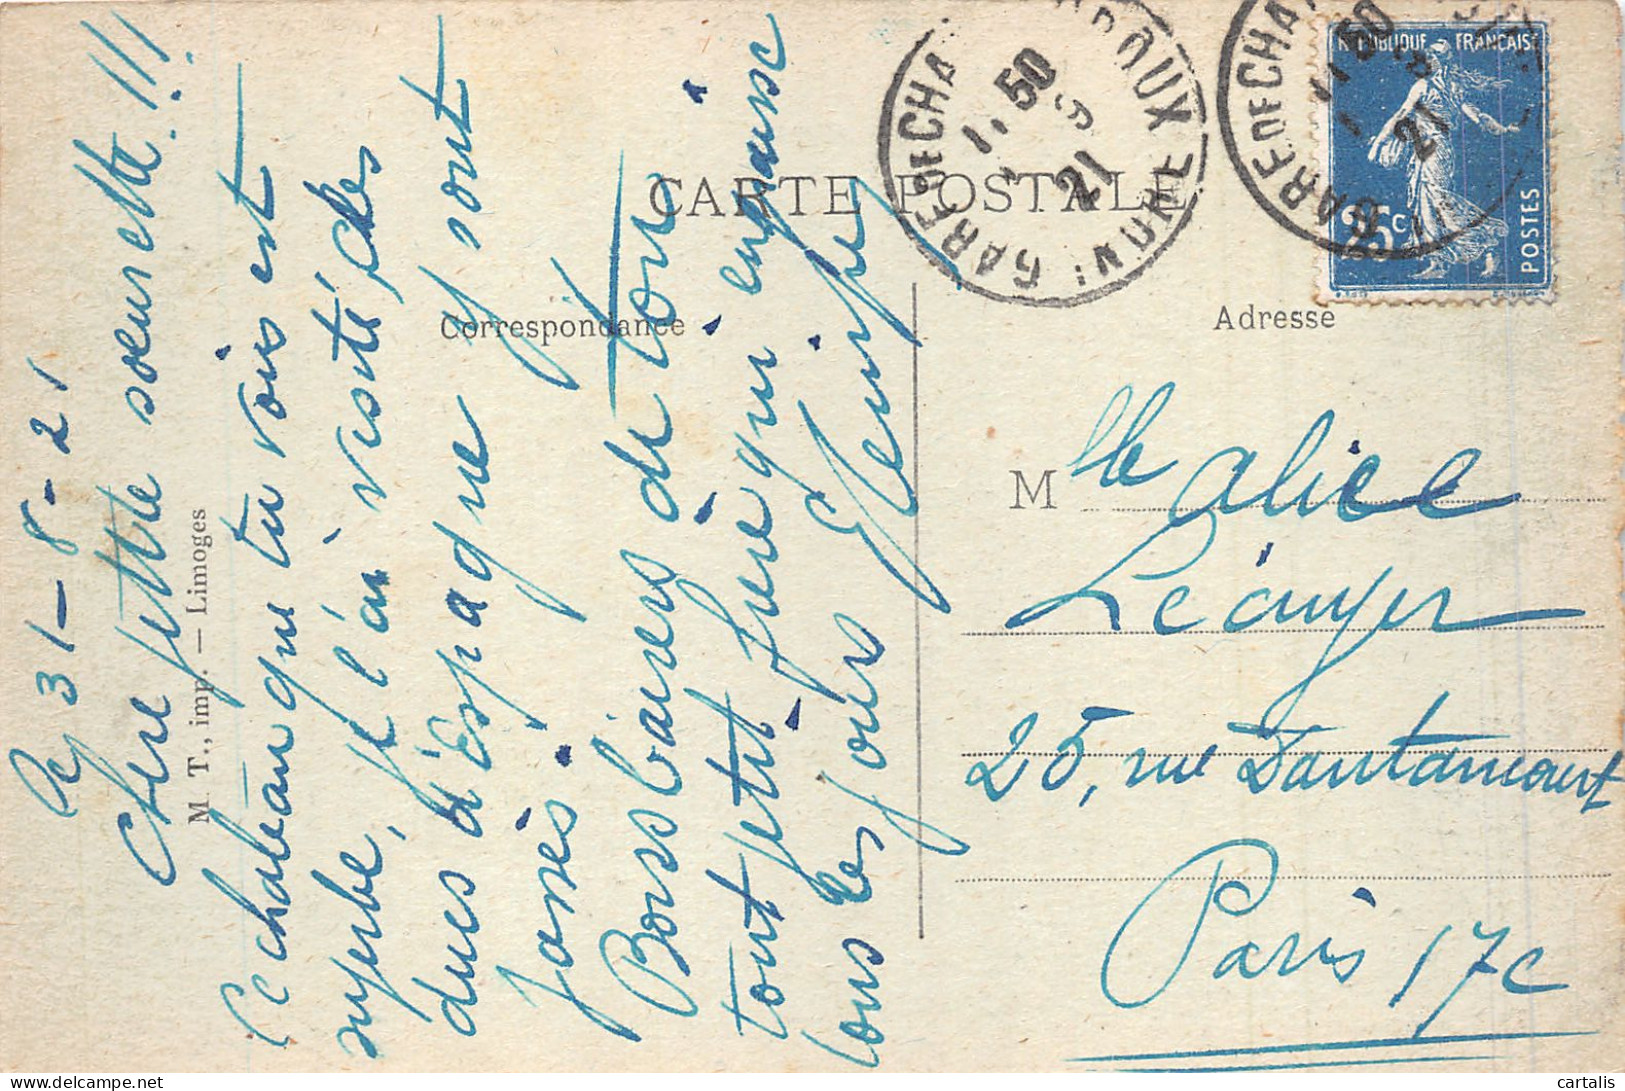 CARTE POSTALE
Correspondance
Adresse
M T., imp. — Limoges
RÉPUBLIQUE FRANÇAISE
25c
POSTES
GARE DE CHA ROUX INDRE
1,50
21
GARE DE CHA
50
21
31-8-21
Chère petite soeurette!!!
Ce château que tu vois est
superbe, je l'ai visité, des
ducs d'Espagne y sont
passés.
Bons baisers de ton
tout petit frère qui engraisse
tous les jours
Mlle Alice
25, rue Dautancourt
Paris 17e
cartalis